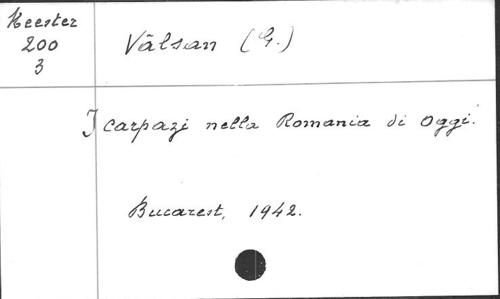 Keester
200
3
Vâlsan (G.)
I carpazi nella Romania di Oggi.
Bucarest, 1942.